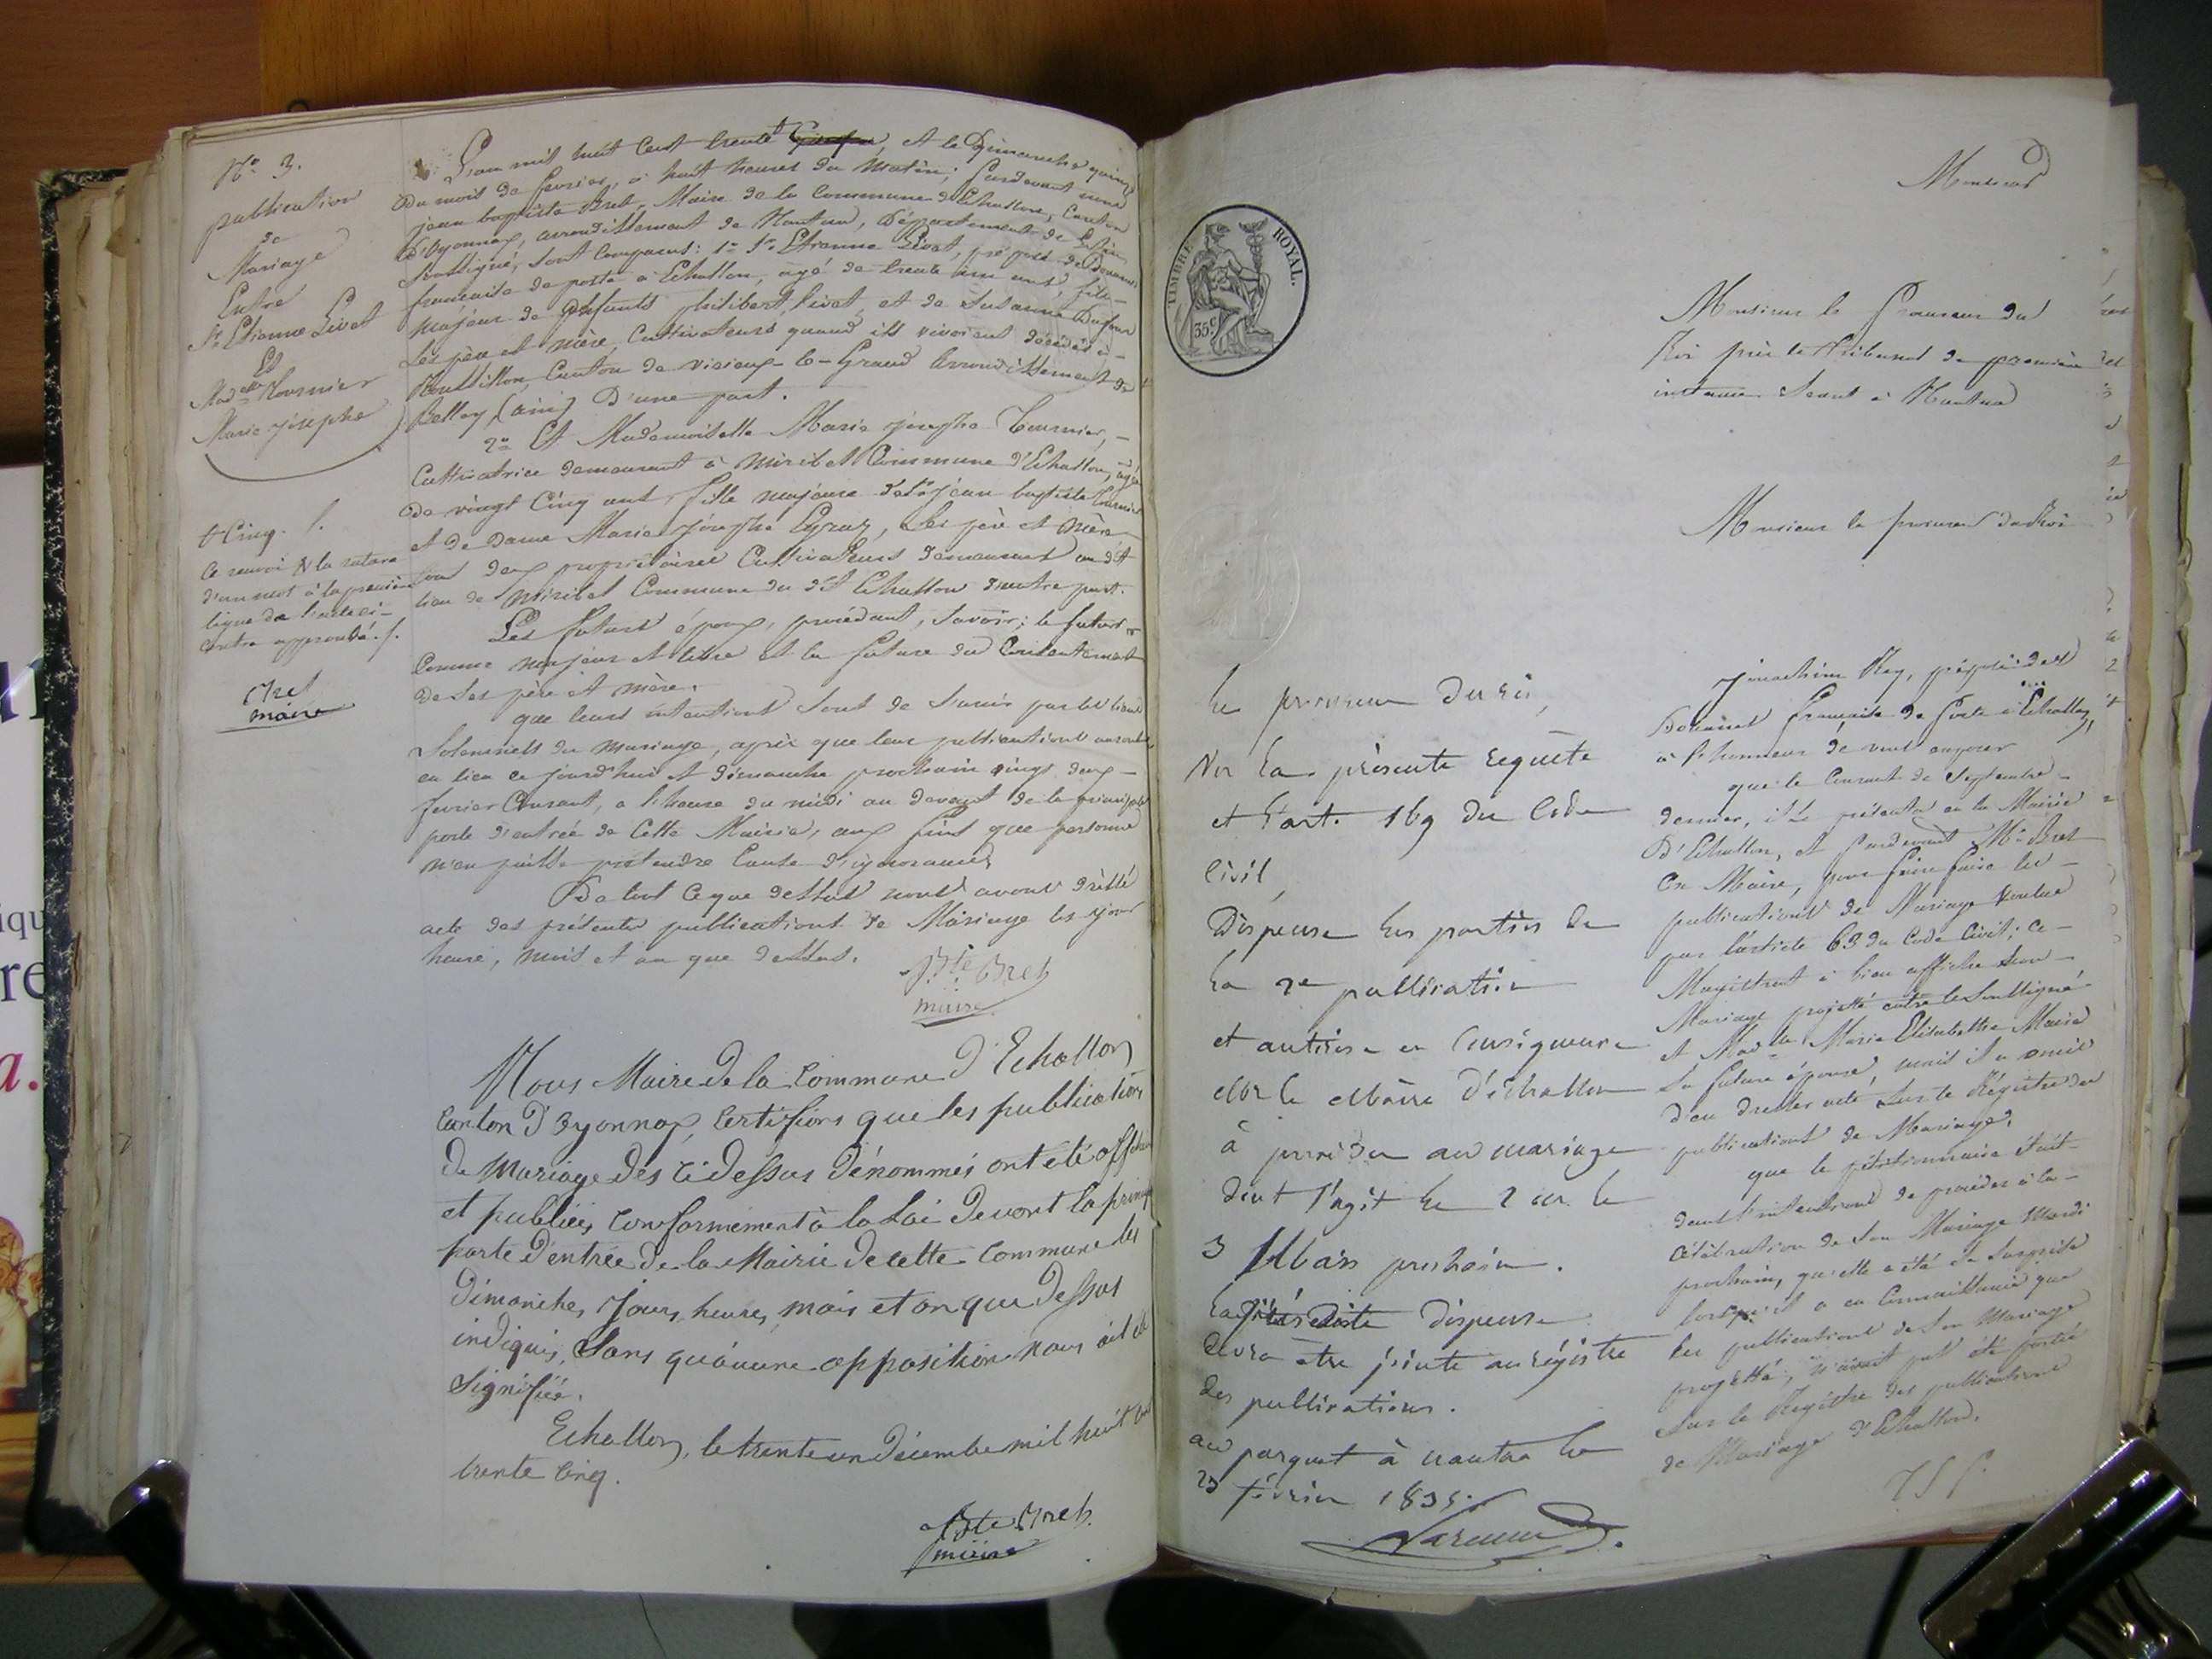 N° 3.
publication
de
Mariage
Entre
Sr. Etienne Livet
Et
Madelle Tournier
Marie josephe
t Cinq. /.
Ce renvoi & la rature
d'un mot à la première
ligne de l'acte ci-
contre approuvé. /.
Bret
maire
L'an mil huit Cent trente t, et le Dimanche quinze
du mois de fevrier, à huit heures du Matin; Pardevant nous
jean baptiste Bret, Maire de la Commune d'Echallon, Canton
d'Oyonnax, arrondissement de Nantua, Département de l'ain
Soussigné, sont Comparus: 1° Sr. Etienne Livet, préposé des Douanes
française de poste à Echallon, agé de trente un ans, fils-
Majeur de défunts philibert Livet, et de Susanne Dufour
Ses père et mère, Cultivateurs quand ils vivoient décédés à-
Rousillon, Canton de virieux-le-Grand Arrondissement de
Belley (ain) D'une part.
2° Et Mademoiselle Marie josephe Tournier,-
Cultivatrice demeurant à Miribel Commune d'Echallon, agée
de vingt Cinq ans, fille majeure de Sr. jean baptiste Tournier
et de Dame Marie josephe Eyraz, Ses père et Mère
tous deux propriétaires Cultivateurs demeurant au dit
lieu de Miribel Commune du dit Echallon d'autre part.
Les futurs époux, procédant, Savoir; le futur
Comme majeur et libre et la future du Consentement
de Ses père et mère.
que leurs intentions sont de s'unir par les liens
Solemnels du mariage, après que leur publications auront
eu lieu ce jourd'hui et dimanche prochain vingt deux-
fevrier Courant, a l'heure du midi au devant de la principale
porte d'entrée de Cette Mairie, aux fins que personne
n'en puisse pretendre Cause d'ignorance
De tout Ce que dessus nous avons dréssé
acte des présentes publications de Mariage les jour
heure, mois et an que dessus.
J. Bte Bret
maire
Nous Maire de la Commune d'Echallon
Canton d'Oyonnax, Certifions que les publications
de Mariage des Cidessus dénommés ont été affichées
et publiées Conformément à la Loi devant la principale
porte d'entrée de la Mairie de cette Commune les
dimanches, Jours, heures, mois et an que dessus
indiqués, Sans qu'aucune opposition nous ait été
Signifiée.
Echallon, le trente un décembre mil huit cent
trente cinq.
J. Bte Bret.
maire
TIMBRE ROYAL.
35c
Monsieur
Monsieur le Procureur du
Roi près le Tribunal de première
instance Séant à Nantua
Monsieur le procureur du Roi
Le procureur du roi,
Vu la présente requête
et l'art. 169 du Code
Civil,
Dispense les parties de
la 2e publication
et autorise en Conséquence
Mr le Maire d'échallon
à procéder au mariage
dont s'agit le
3 Mars prochain.
la dispense
devra être jointe au régistre
des publications.
au parquet à nantua le
23 février 1835.
Joachim Rey, préposé des
Douanes française de Poste à Echallon,
a l'honneur de vous exposer
que le Courant de Septembre-
dernier, il s'est présenté en la Mairie
D'Echallon, et pardevant Mr Bret
En Maire, pour faire faire les-
publications de Mariage voulue
par l'article 63 du Code Civil; Ce-
Magistrat a bien affiché son-
Mariage projetté entre le Soussigné
et Madlle Marie Elisabethe Maire
Sa future épouse, mais il a omis
d'en dresser acte sur le Régistre des
publications de Mariage.
que le pétitionnaire étant-
dans l'intentions de procéder à la-
Célébration de Son Mariage Mardi
prochain, quelle a été Sa surprise
lorsqu'il a eu Connaissance que
les publications de Son Mariage
projetté, n'avait pas été portée
sur le Régistre des publications
de Mariage d'Echallon.
T S P.